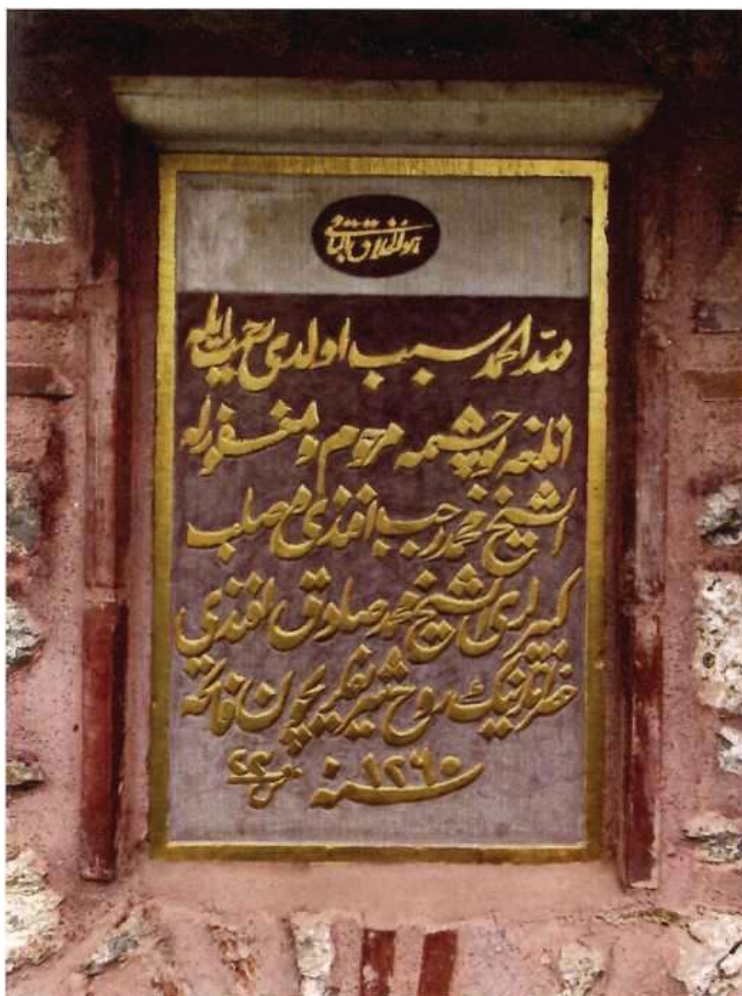 هو الخلاق الباقی
لله الحمد سبب اولدی حمیت ایله
انلمغه بو چشمه مرحوم و مغفورله
الشیخ محمد رجب افندی صلب
کبیرلری الشیخ محمد صادق افندی
حضرتلرینک روح شریفلریچون فاتحه
سنه ١٢٦٠ ٢٢